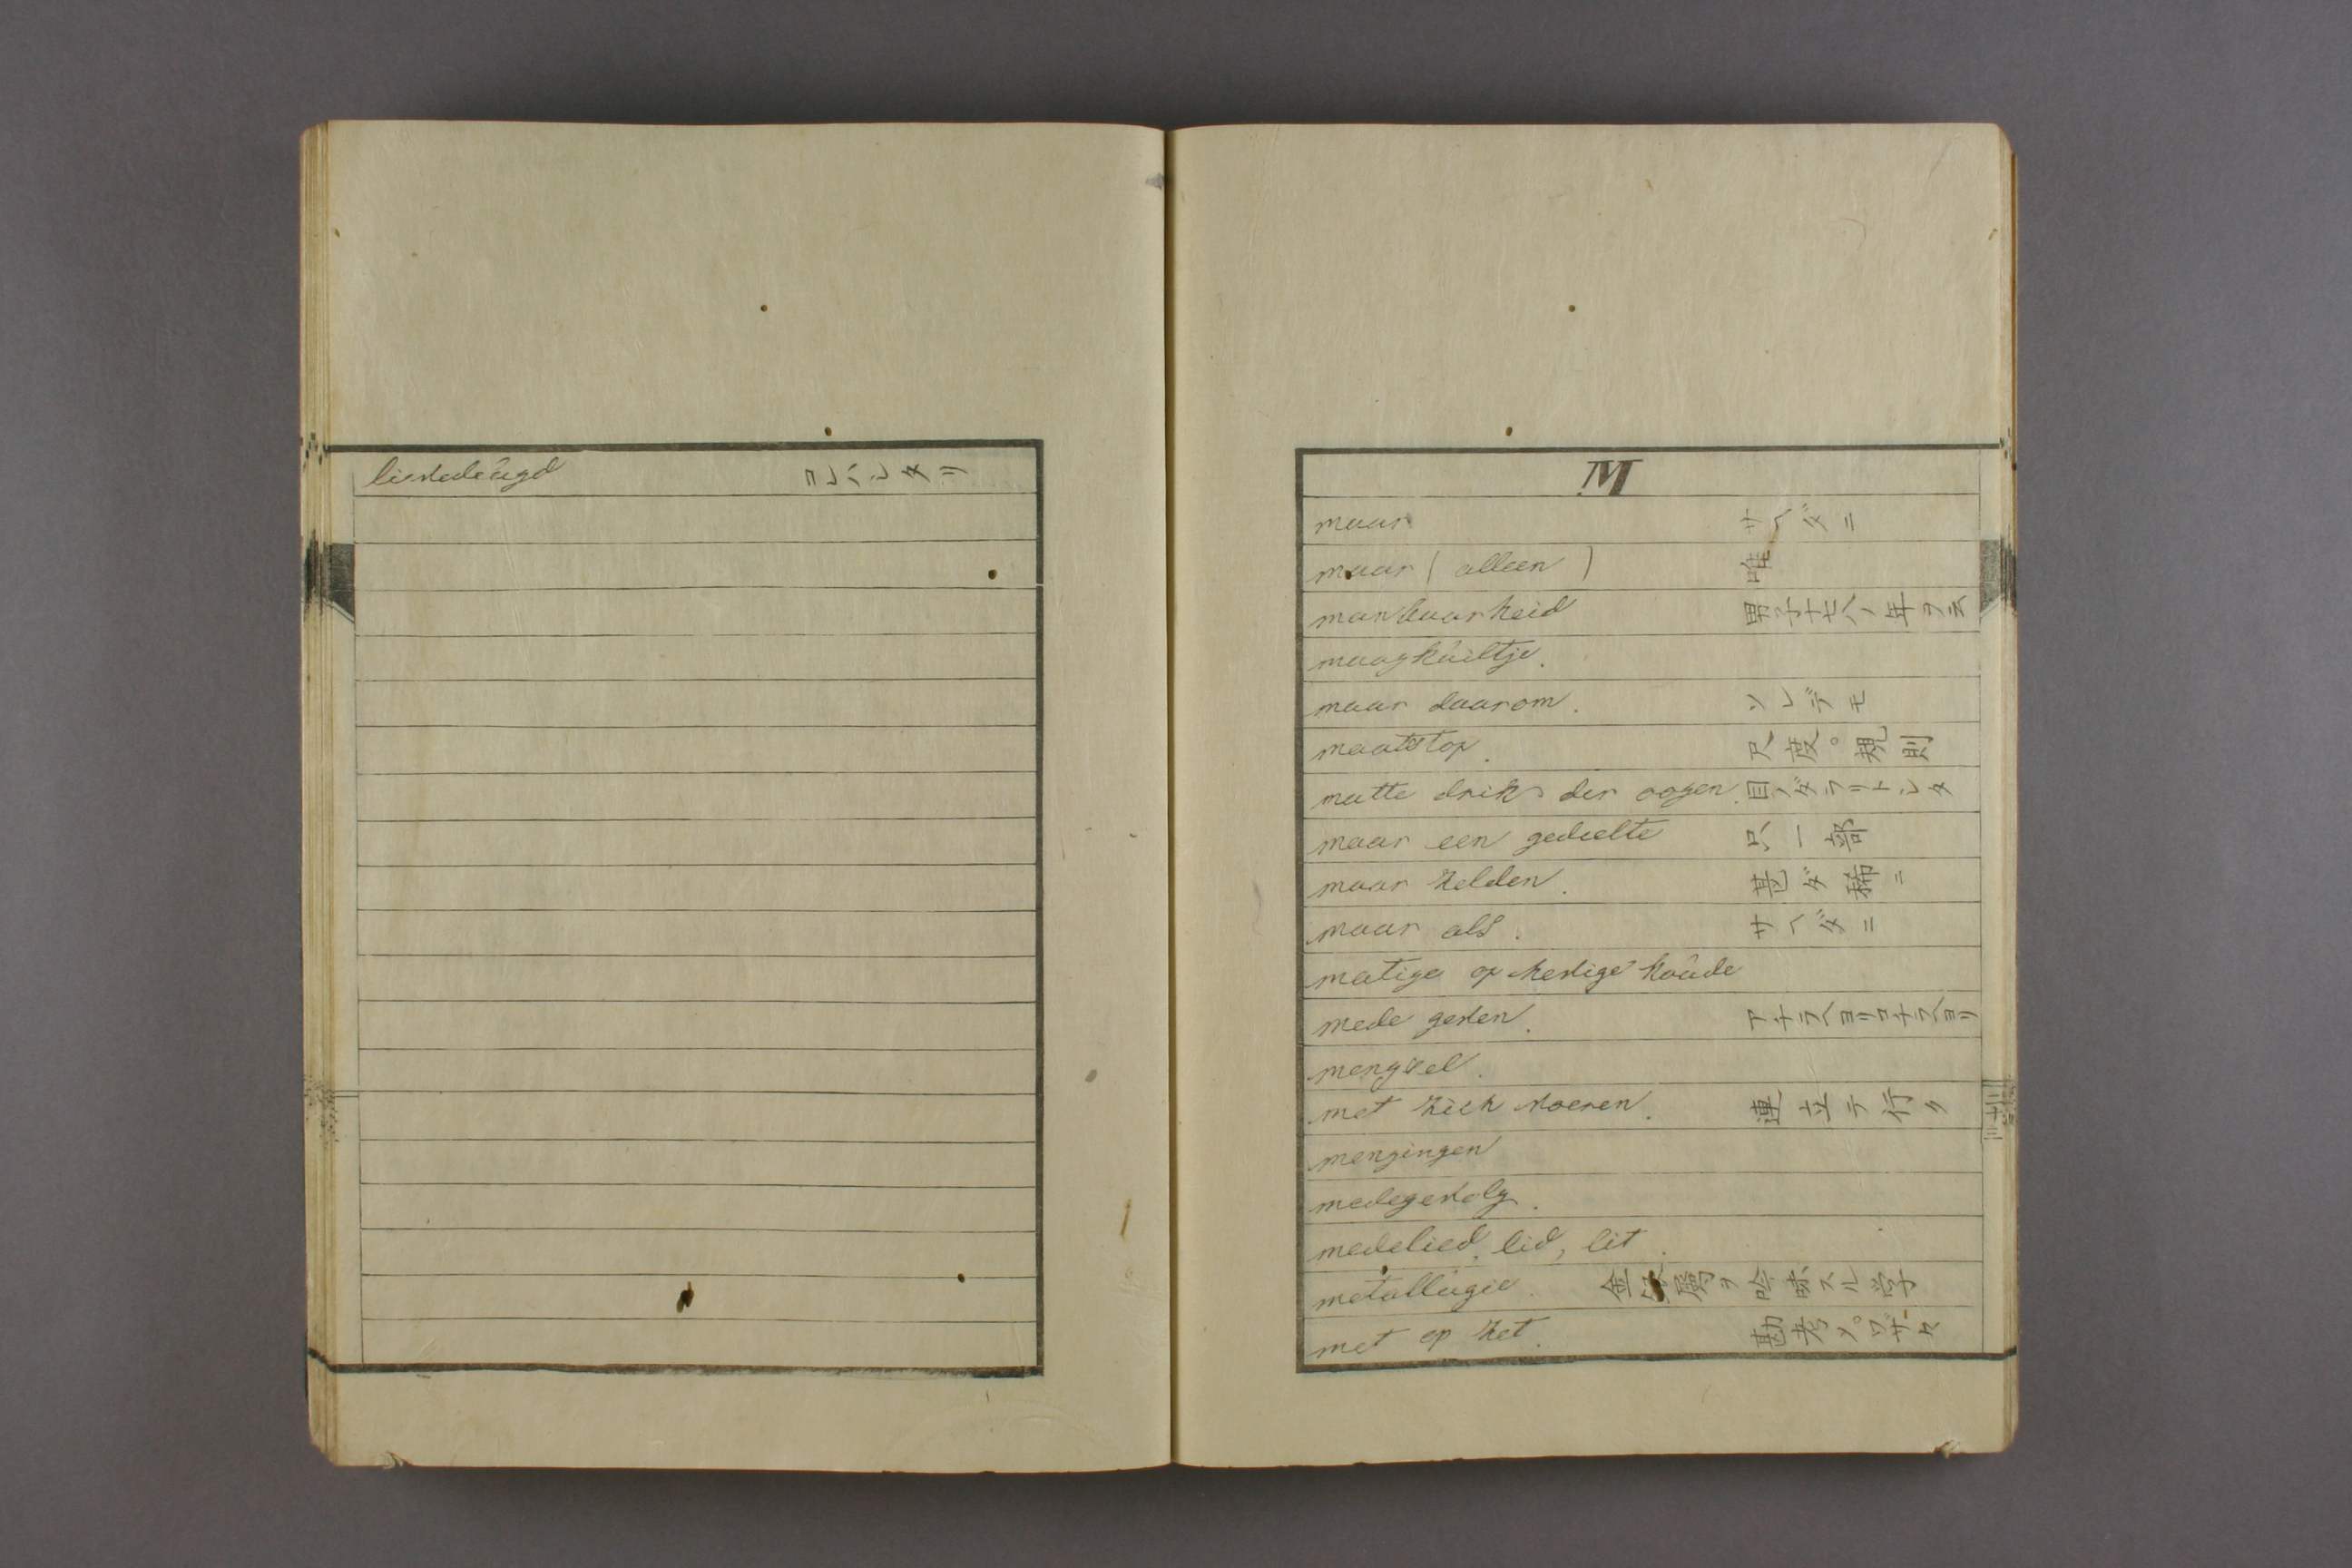 lievedeugd
M
maar サヘダニ
maar (alleen) 唯
manbaarheid 男子十七八ノ年ヲ云
maagkuiltje.
maar daarom. ソレデモ
maatstop. 尺度。規則
matte drik der oogen. 目ノダラリトシタ
maar een gedeelte 只一部
maar zelden. 甚ダ稀ニ
maar als. サヘダニ
matige op hevige koude
mede geven. アチラヘヨリコチラヘヨリ
mengsel.
met zich voeren. 連立テ行ク
mengingen
medegevolg.
medelied, lid, lit.
metallugie. 金属ヲ吟味スル学
met op zet. 勘考メ。ワザ々